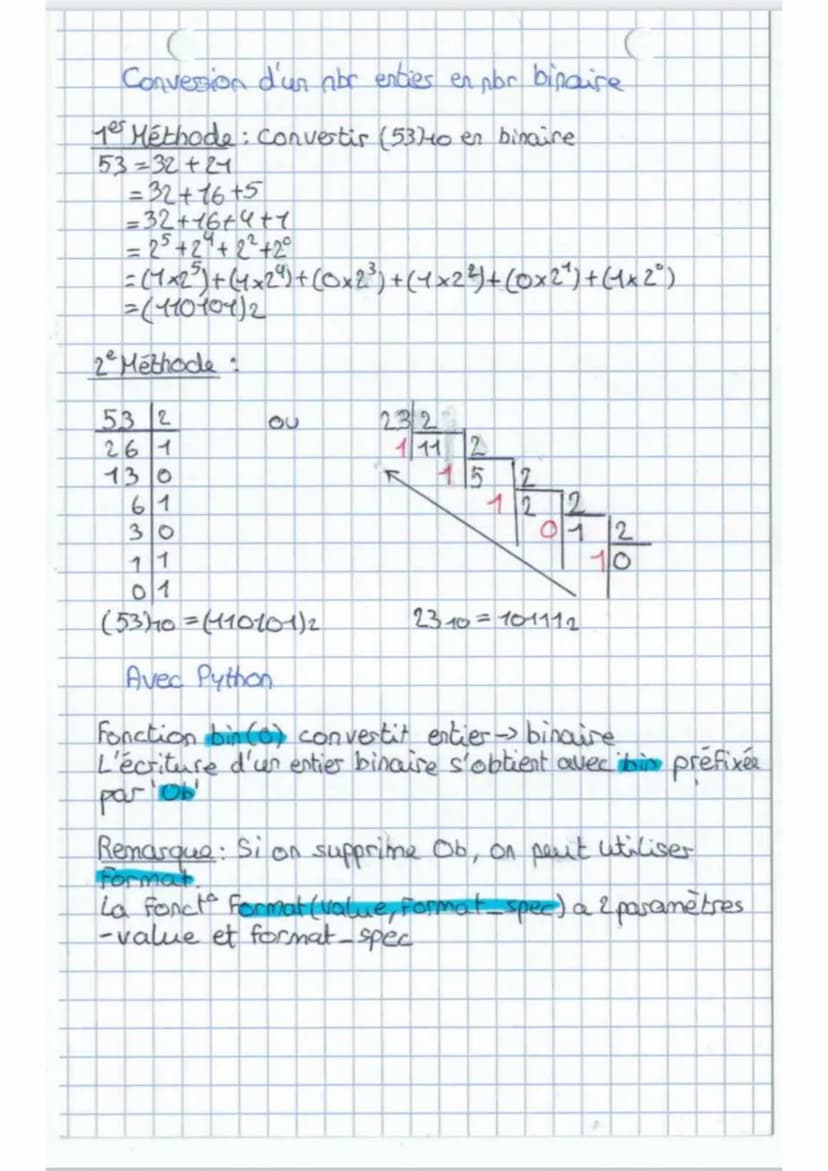 Conversion d'un nbr entier en nbr binaire
1er Méthode : Convertir (53)10 en binaire
53 = 32 + 21
= 32 + 16 + 5
= 32 + 16 + 4 + 1
= 2⁵ + 2⁴ + 2² + 2⁰
= (1x2⁵) + (1x2⁴) + (0x2³) + (1x2²) + (0x2¹) + (1x2⁰)
= (110101)2
2e Méthode :
53 | 2
26 | 1
13 | 0
6 | 1
3 | 0
1 | 1
0 | 1
(53)10 = (110101)2
ou
23 | 2
1 | 11 | 2
1 | 5 | 2
1 | 2 | 2
0 | 1 | 2
1 | 0
23 10 = 10111 2
Avec Python
Fonction bin(0) convertit entier → binaire
L'écriture d'un entier binaire s'obtient avec bin préfixée
par '0b'
Remarque : Si on supprime 0b, on peut utiliser
format.
La fonct° format(value, format_spec) a 2 paramètres
-value et format_spec